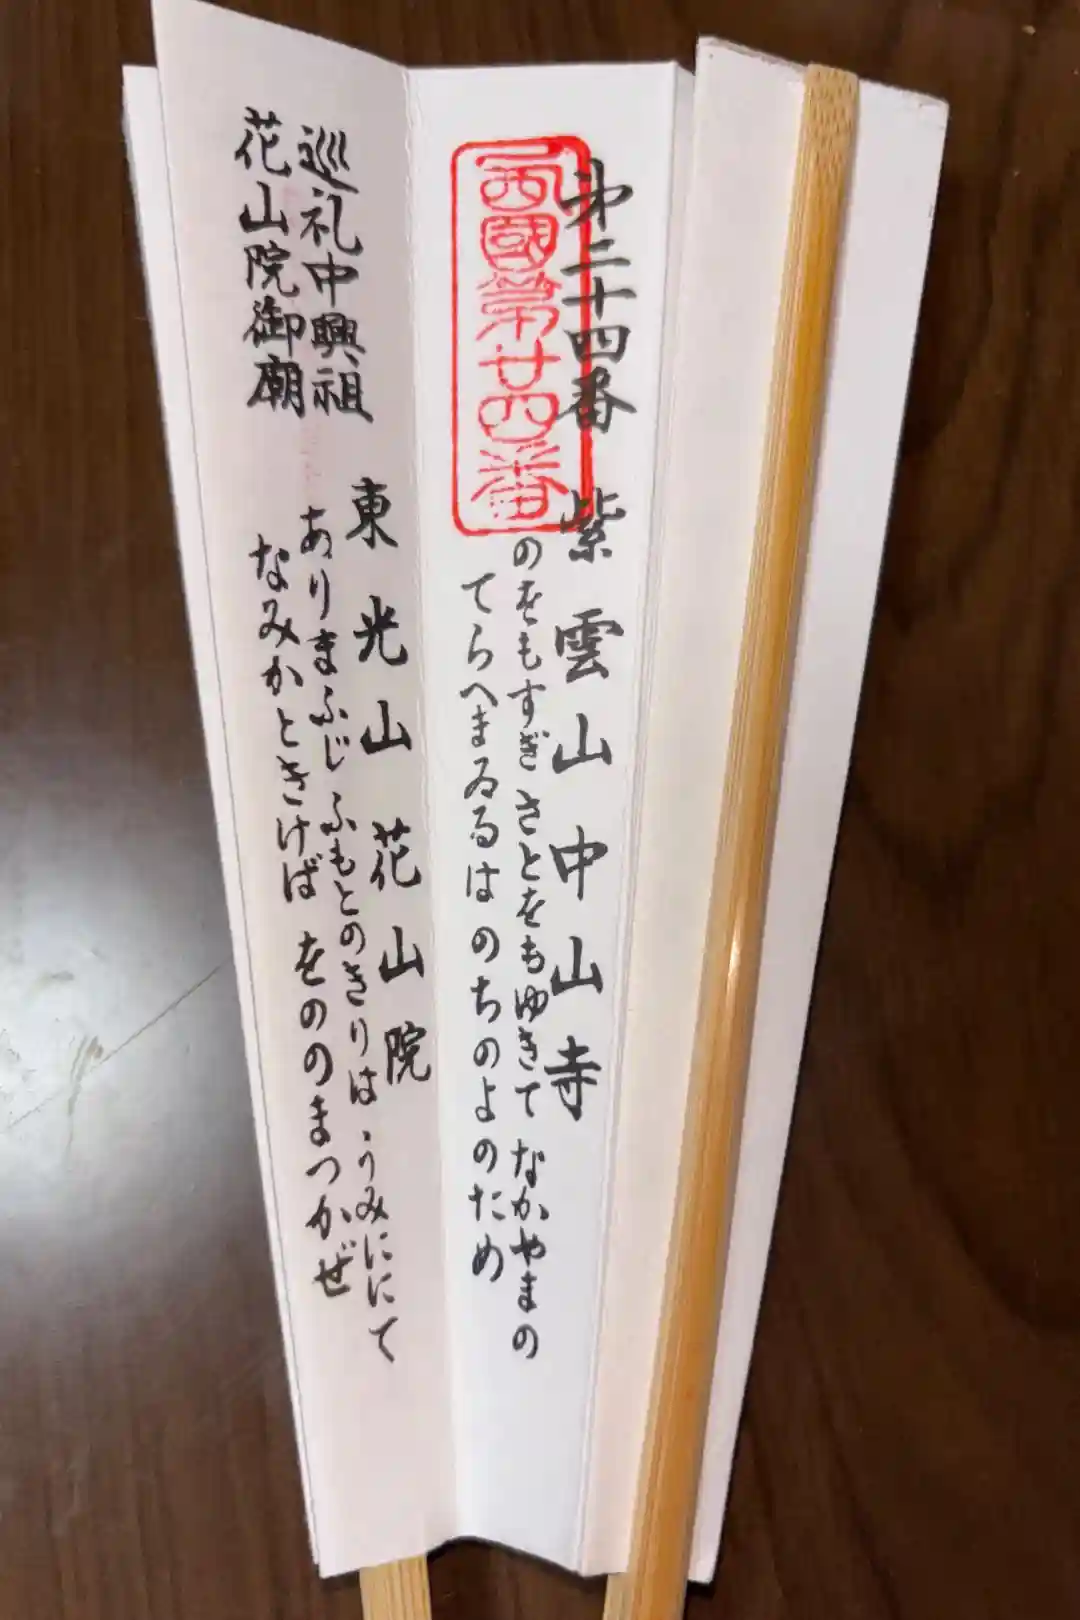 第二十四番 紫雲山中山寺
西國第廿四番
のをもすぎ さとをもゆきて なかやまの
てらへまゐるは のちのよのため
東光山花山院
巡礼中興祖
花山院御廟
ありまふじ ふもとのきりは うみににて
なみかときけば をののまつかぜ